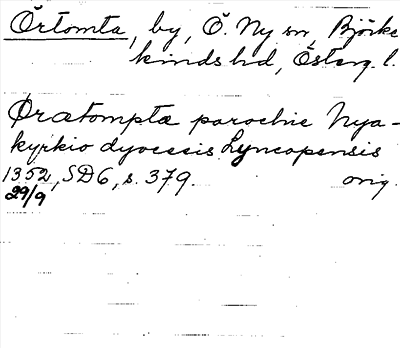 Örtomta, by, Ö. Ny sn, Björke
kinds hd, Österg. l.
Ørætomptæ parochie Nya-
kyrkio dyocesis Lyncopensis
1352, SD6, s. 379. orig.
29/9